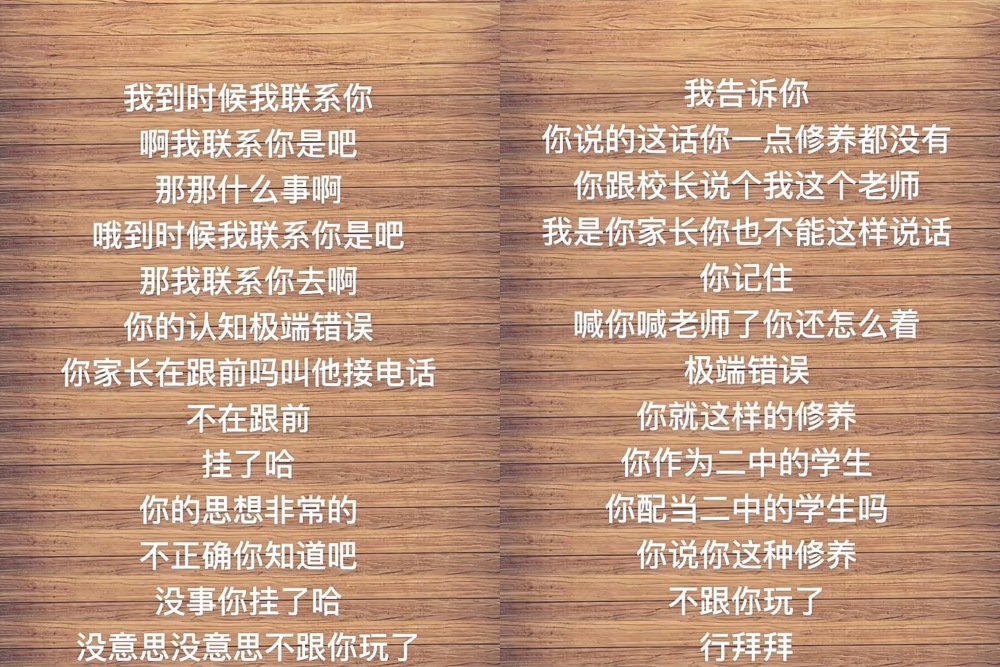 我到时候我联系你
啊我联系你是吧
那那什么事啊
哦到时候我联系你是吧
那我联系你去啊
你的认知极端错误
你家长在跟前吗叫他接电话
不在跟前
挂了哈
你的思想非常的
不正确你知道吧
没事你挂了哈
没意思没意思不跟你玩了
我告诉你
你说的这话你一点修养都没有
你跟校长说个我这个老师
我是你家长你也不能这样说话
你记住
喊你喊老师了你还怎么着
极端错误
你就这样的修养
你作为二中的学生
你配当二中的学生吗
你说你这种修养
不跟你玩了
行拜拜